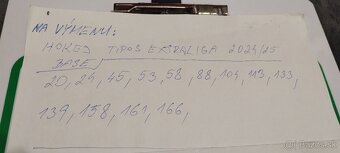 NA VÝMENU:
HOKEJ TIPOS EXTRALIGA 2024/25
BASE
20, 24, 45, 53, 58, 88, 104, 113, 133,
139, 158, 161, 166,